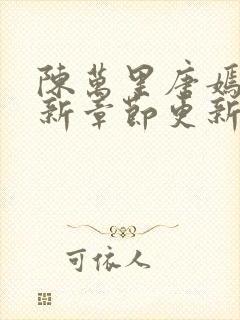 陳萬里唐嫣
新章節更新
可依人